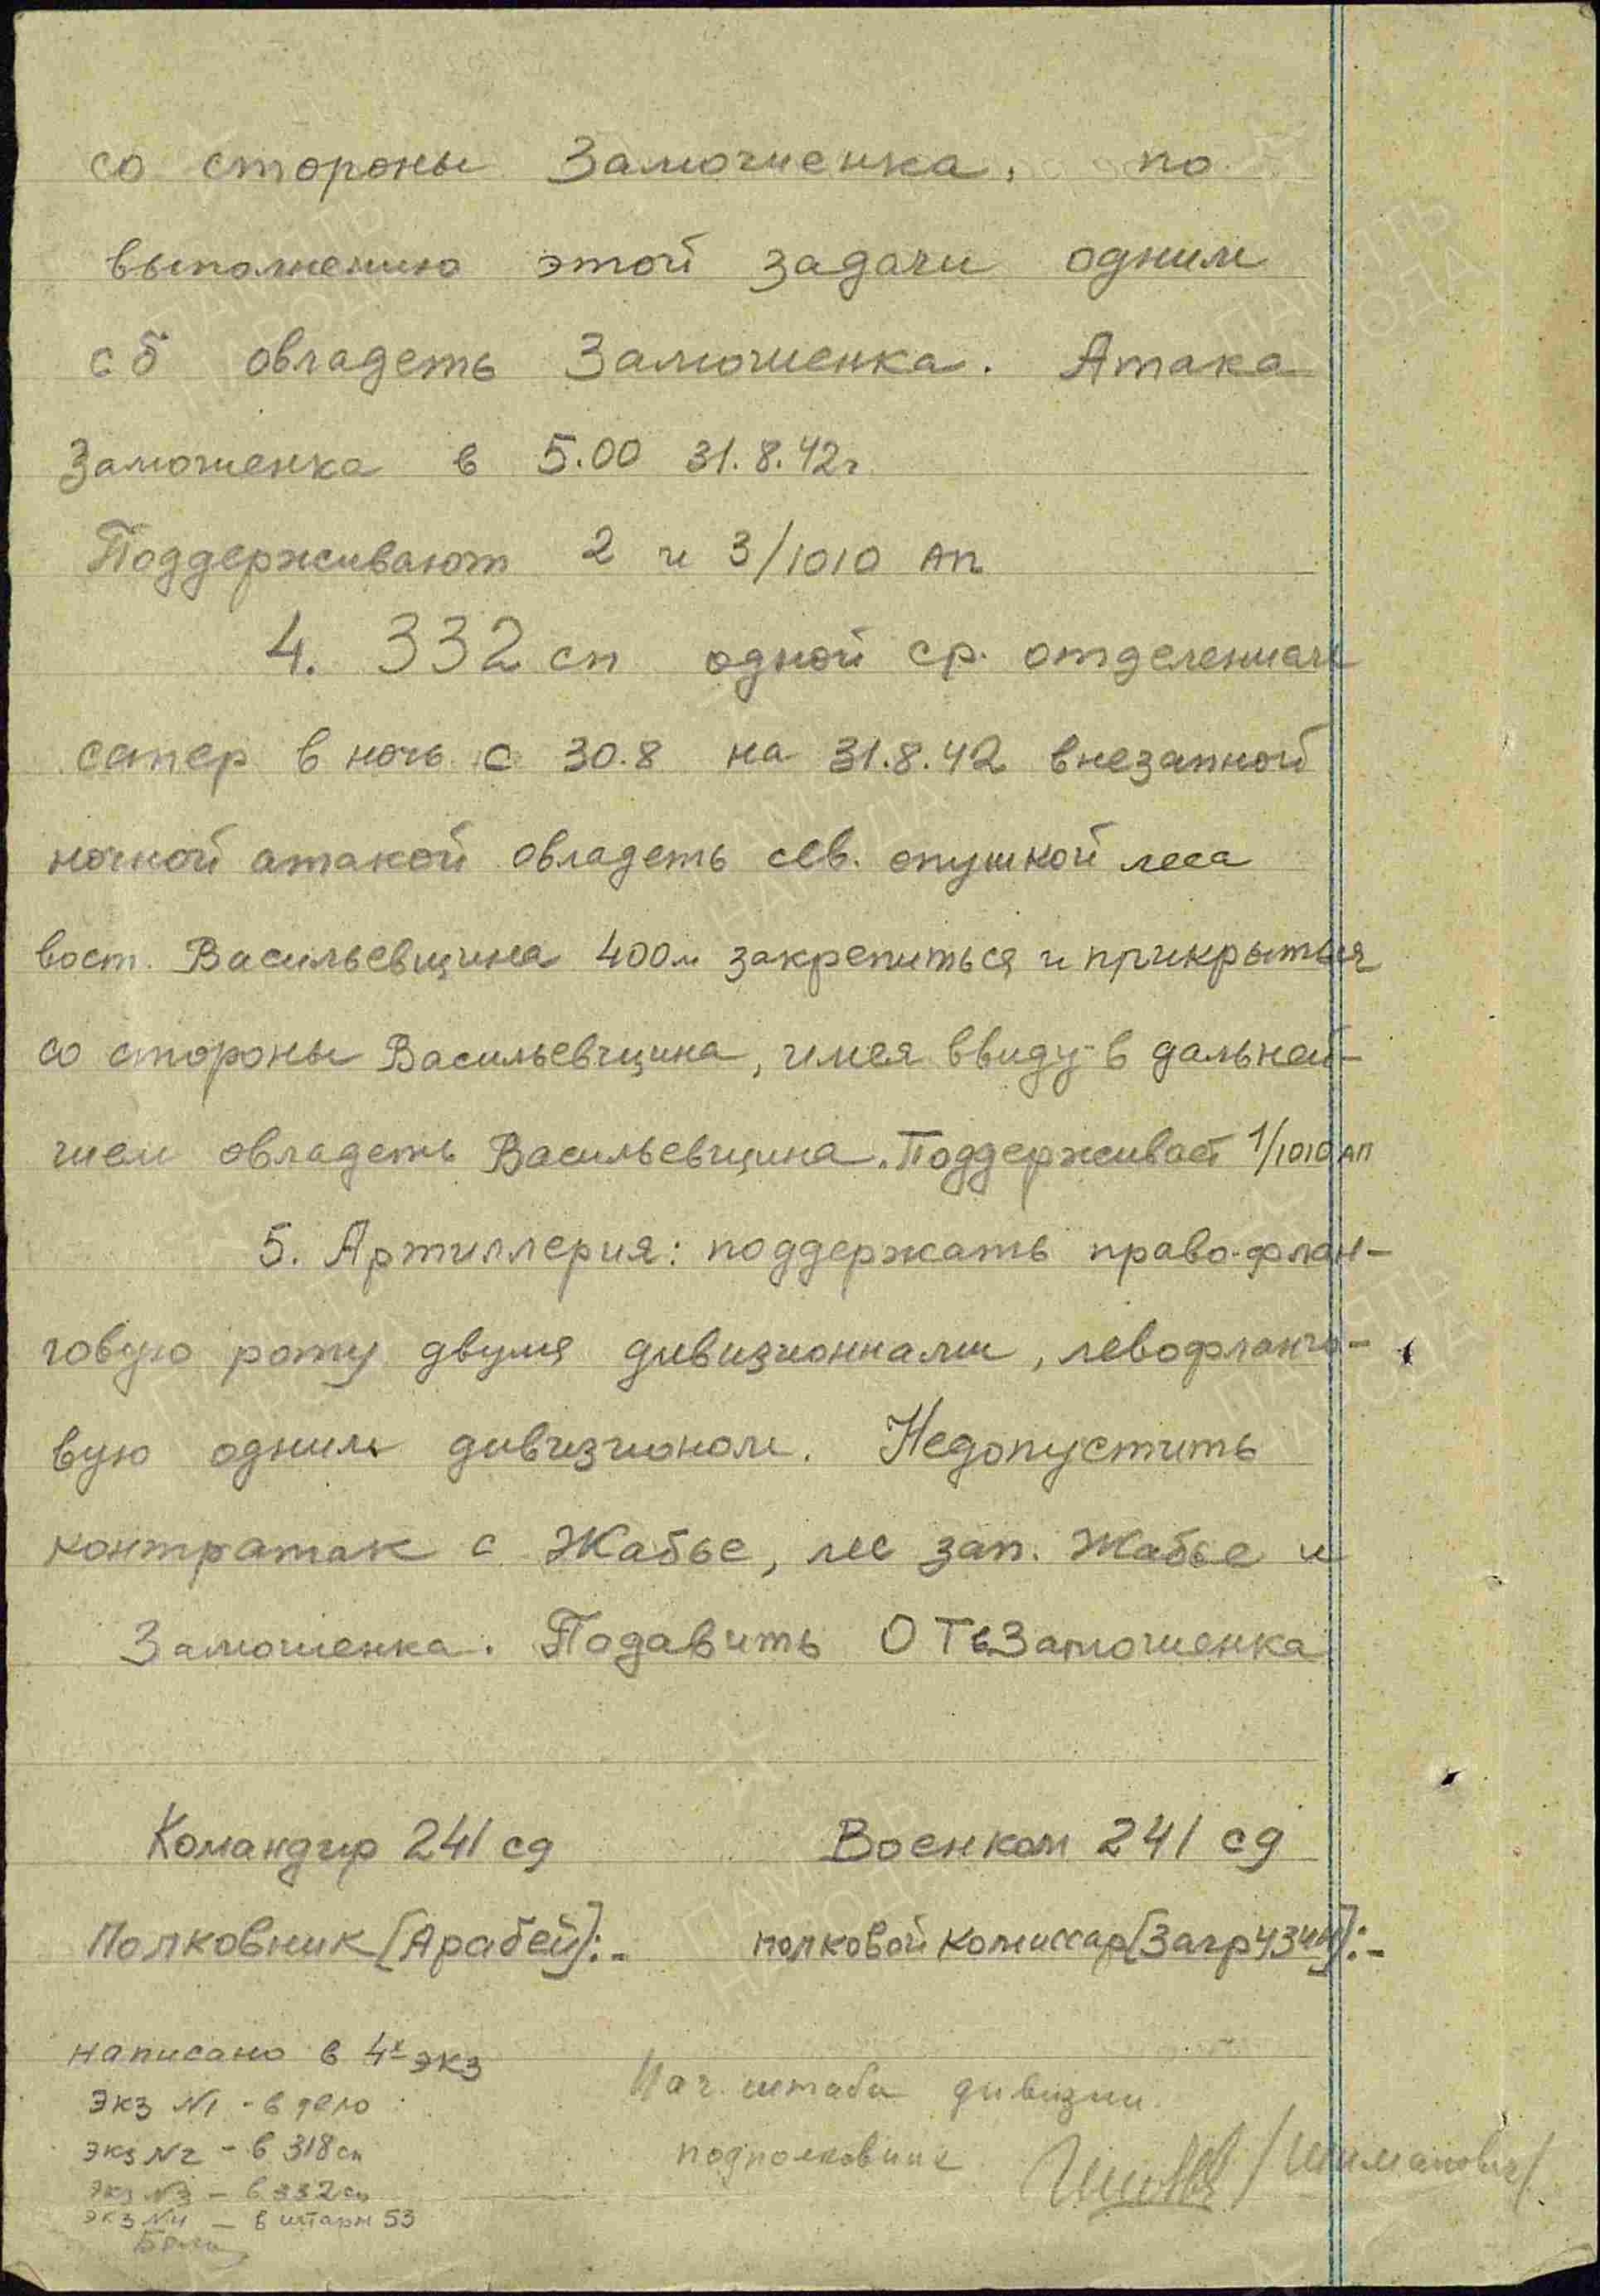 со стороны Замошенка, по
выполнению этой задачи одним
сб овладеть Замошенка. Атака
Замошенка в 5.00 31.8.42г
Поддерживают 2 и 3/1010 ап
4. 332 сп одной ср. отделением
сапер в ночь с 30.8 на 31.8.42 внезапной
ночной атакой овладеть сев. опушкой леса
вост. Васильевщина 400м закрепиться и прикрыться
со стороны Васильевщина, имея ввиду в дальней-
шем овладеть Васильевщина. Поддерживает 1/1010 ап
5. Артиллерия: поддержать право-флан-
говую роту двумя дивизионнами, левофланго-
вую одним дивизионом. Недопустить
контратак с Жабье, лес зап. Жабье и
Замошенка. Подавить ОТ в Замошенка
Командир 241 сд Военком 241 сд
Полковник [Арабей]:- полковой комиссар [Загрузин]:-
Написано в 4х экз
Экз №1 - в дело
Экз №2 - в 318 сп
Экз №3 - в 332 сп
Экз №4 - в штарм 53
Нач. штаба дивизии
подполковник /Шиманович/
ПАМЯТЬ
НАРОДА